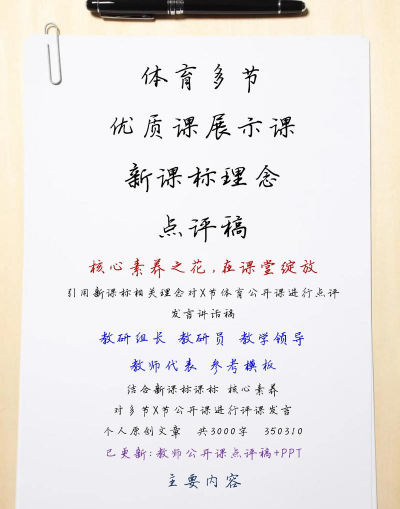 体育多节
优质课展示课
新课标理念
点评稿
核心素养之花,在课堂绽放
引用新课标相关理念对X节体育公开课进行点评
发言讲话稿
教研组长 教研员 教学领导
教师代表 参考模板
结合新课标课标 核心素养
对多节X节公开课进行评课发言
个人原创文章 共3000字 350310
已更新:教师公开课点评稿+PPT
主要内容